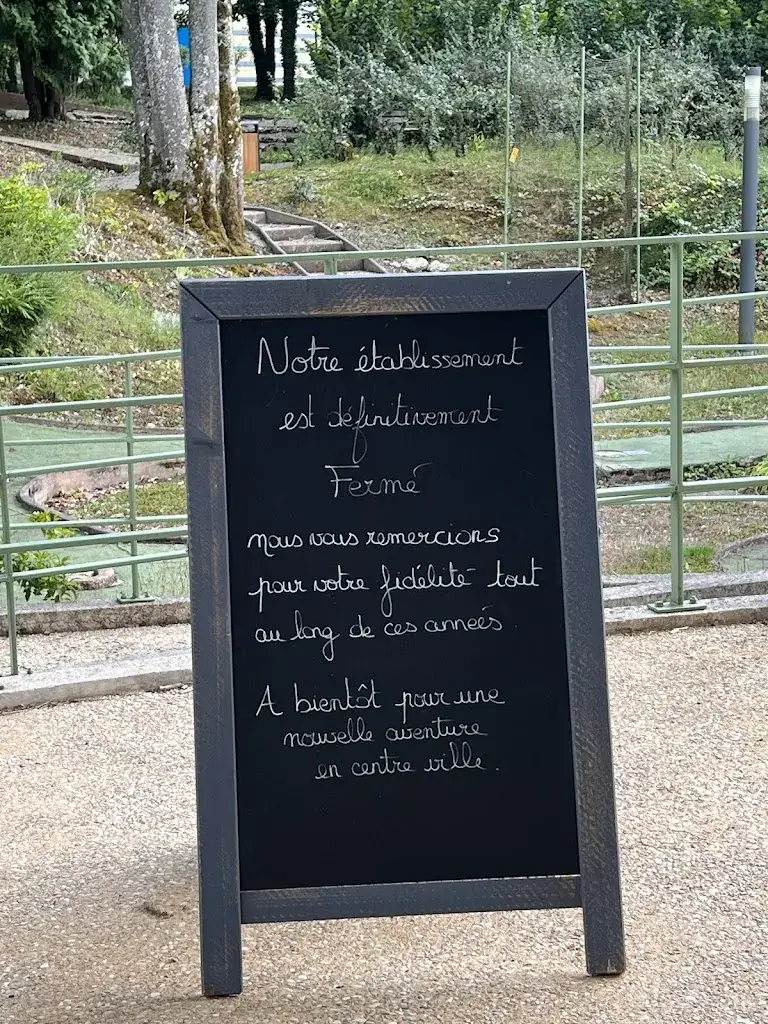 Notre établissement
est définitivement
Fermé
nous vous remercions
pour votre fidélité tout
au long de ces années
A bientôt pour une
nouvelle aventure
en centre ville.